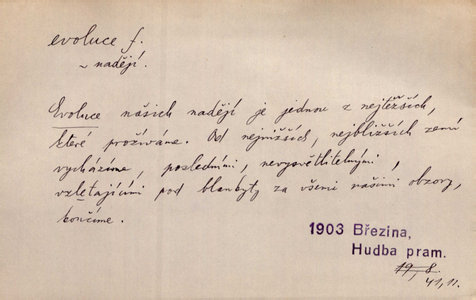 evoluce f.
~ nadějí.
Evoluce našich nadějí je jednou z nejtěžších,
které prožíváme. Od nejnižších, nejbližších zemi
vycházíme, posledními, nevysvětlitelnými,
vzlétajícími pod blankyty za všemi našimi obzory,
končíme.
1903 Březina,
Hudba pram.
19, 8.
41, 11.